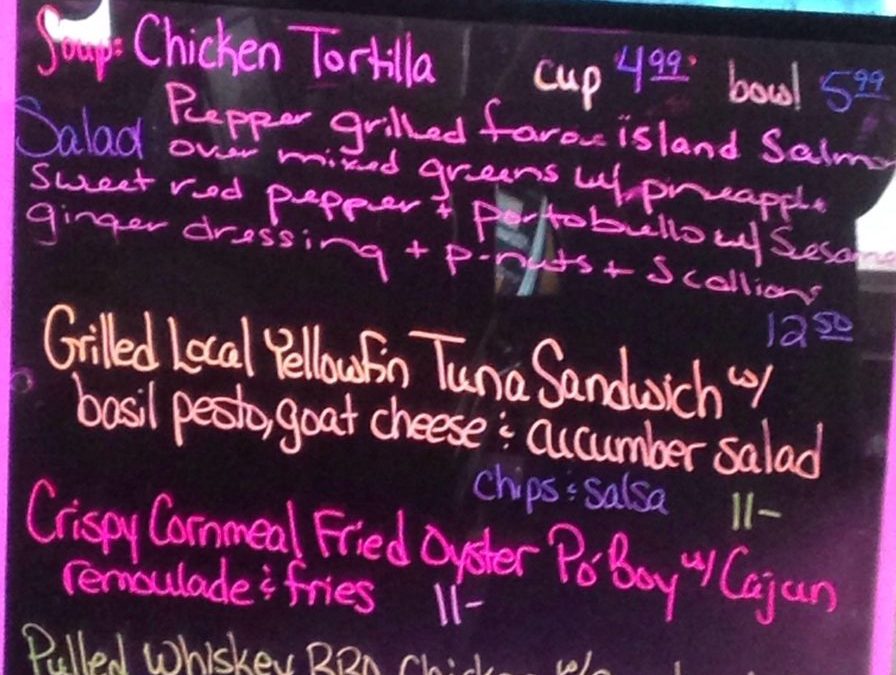 Soup: Chicken Tortilla cup 4.99 bowl 5.99
Salad Pepper grilled faroe island Salmo
over mixed greens w/ pineapple
sweet red pepper + portobello w/ Sesame
ginger dressing + p-nuts + Scallions
12 50
Grilled Local Yellowfin Tuna Sandwich w/
basil pesto, goat cheese & cucumber salad
chips & salsa 11-
Crispy Cornmeal Fried Oyster Po'Boy w/ Cajun
remoulade & fries 11-
Pulled Whiskey BBQ Chicken w/